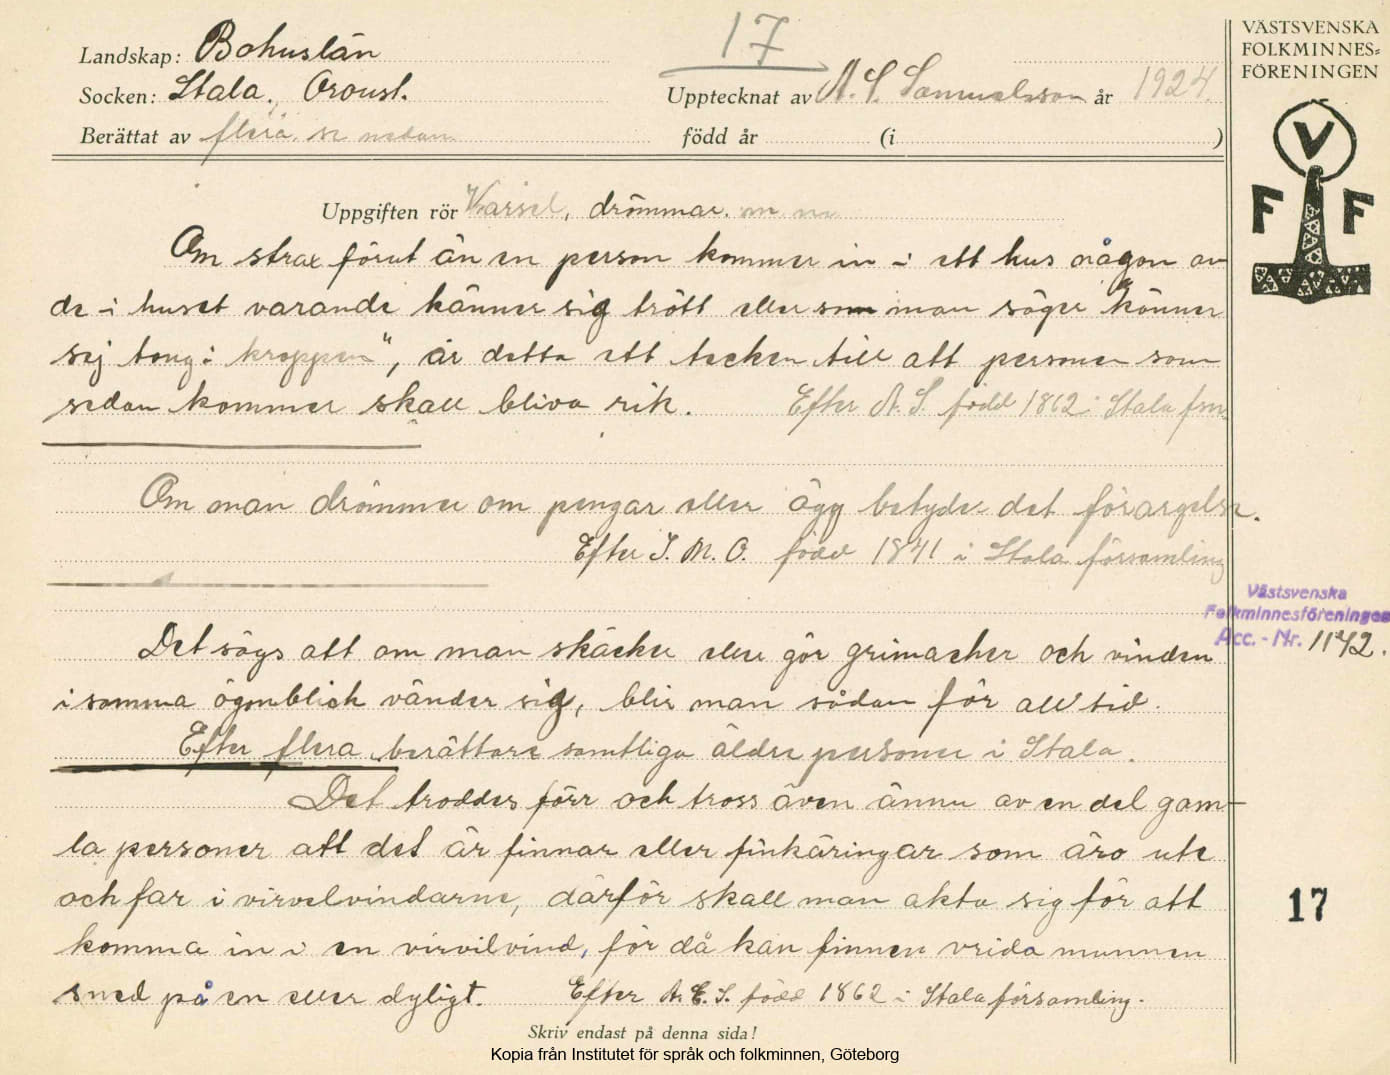 17
Landskap: Bohuslän
Socken: Stala. Oroust.
Upptecknat av A. S. Samuelsson år 1924.
Berättat av flera se nedan född år (i )
Uppgiften rör Varsel, drömmar. m m
Om strax förut än en person kommer in i ett hus någon av
de i huset varande känner sig trött eller som man säger "känner
sej tong i kroppen", är detta ett tecken till att personen som
sedan kommer skall bliva rik. Efter A. S. född 1862 i Stala fm.
Om man drömmer om pengar eller ägg betyder det förargelse.
Efter J. M. O. född 1841 i Stala församling
Det sägs att om man skäcker eller gör grimacher och vinden
i samma ögonblick vänder sig, blir man sådan för all tid.
Efter flera berättare samtliga äldre personer i Stala.
Det troddes förr och tross även ännu av en del gam-
la personer att det är finnar eller finkäringar som äro ute
och far i virvelvindarne, därför skall man akta sig för att
komma in i en virvilvind, för då kan finnen vrida munnen
sned på en eller dyligt. Efter A. C. S. född 1862 i Stala församling.
Skriv endast på denna sida!
Kopia från Institutet för språk och folkminnen, Göteborg
VÄSTSVENSKA
FOLKMINNES=
FÖRENINGEN
V
F F
Västsvenska
Folkminnesföreningen
Acc.-Nr. 1142.
17